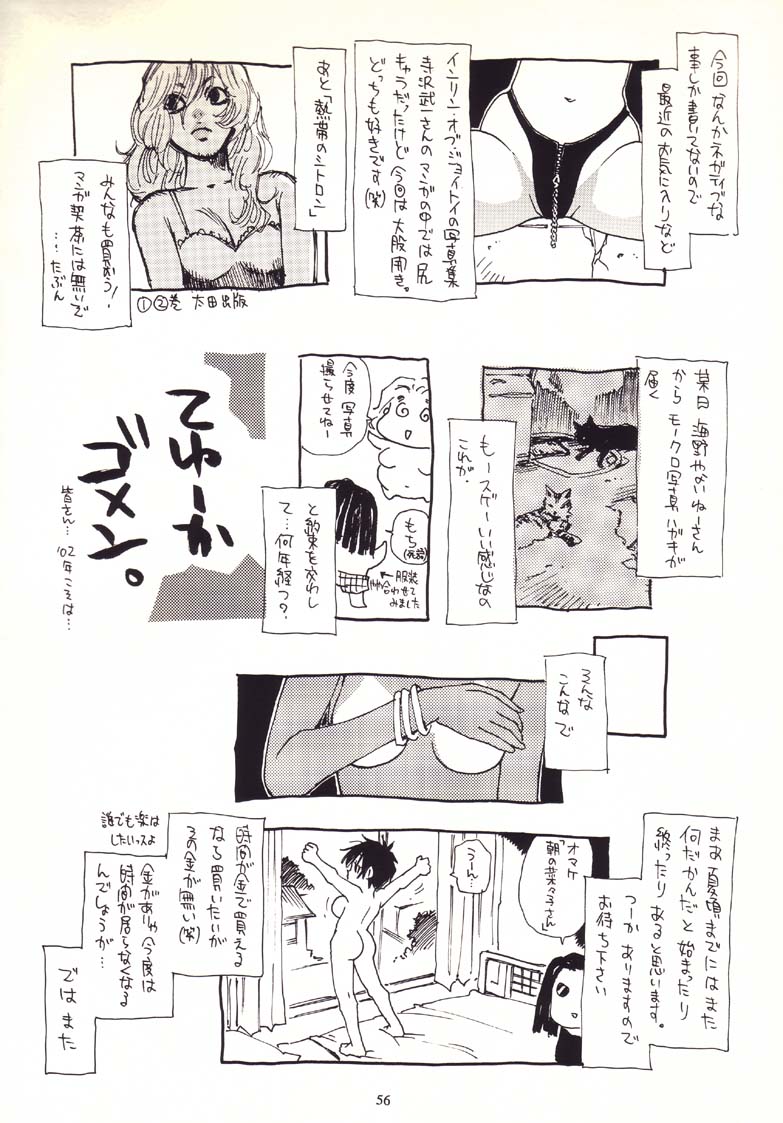 今回なんかネガティブな
事しか書いてないので
最近のお気に入りなど
インリン・オブ・ジョイトイの写真集
寺沢武一さんのマンガの中では尻
キャラだったけど今回は大股開き。
どっちも好きです(笑)
あと「熱帯のシトロン」
みんなも買おう!
マンガ喫茶には無いで
…たぶん
①②巻 太田出版
某日 海野やよいねーさん
から モークロ写真ハガキが
届く
もースゲーいい感じなの
これが.
今度 写真
撮らせてねー
もち
(死語)
←服装
合わせて
みました
と約束を交わし
て…何年経つ?
てゆーか
ゴメン。
皆さん… '02年ころは…
そんな
こんなで
まあ夏頃までにはまた
何だかんだと始まったり
終ったりあると思います。
つーかありますので
お待ち下さい
オマケ
「朝の菜々子さん」
うーん…
時間が金で買える
なら買いたいが
その金が無い(笑)
誰でも楽は
したいっスよ
金がありゃ今度は
時間が居らなくなる
んでしょうが…
ではまた
56